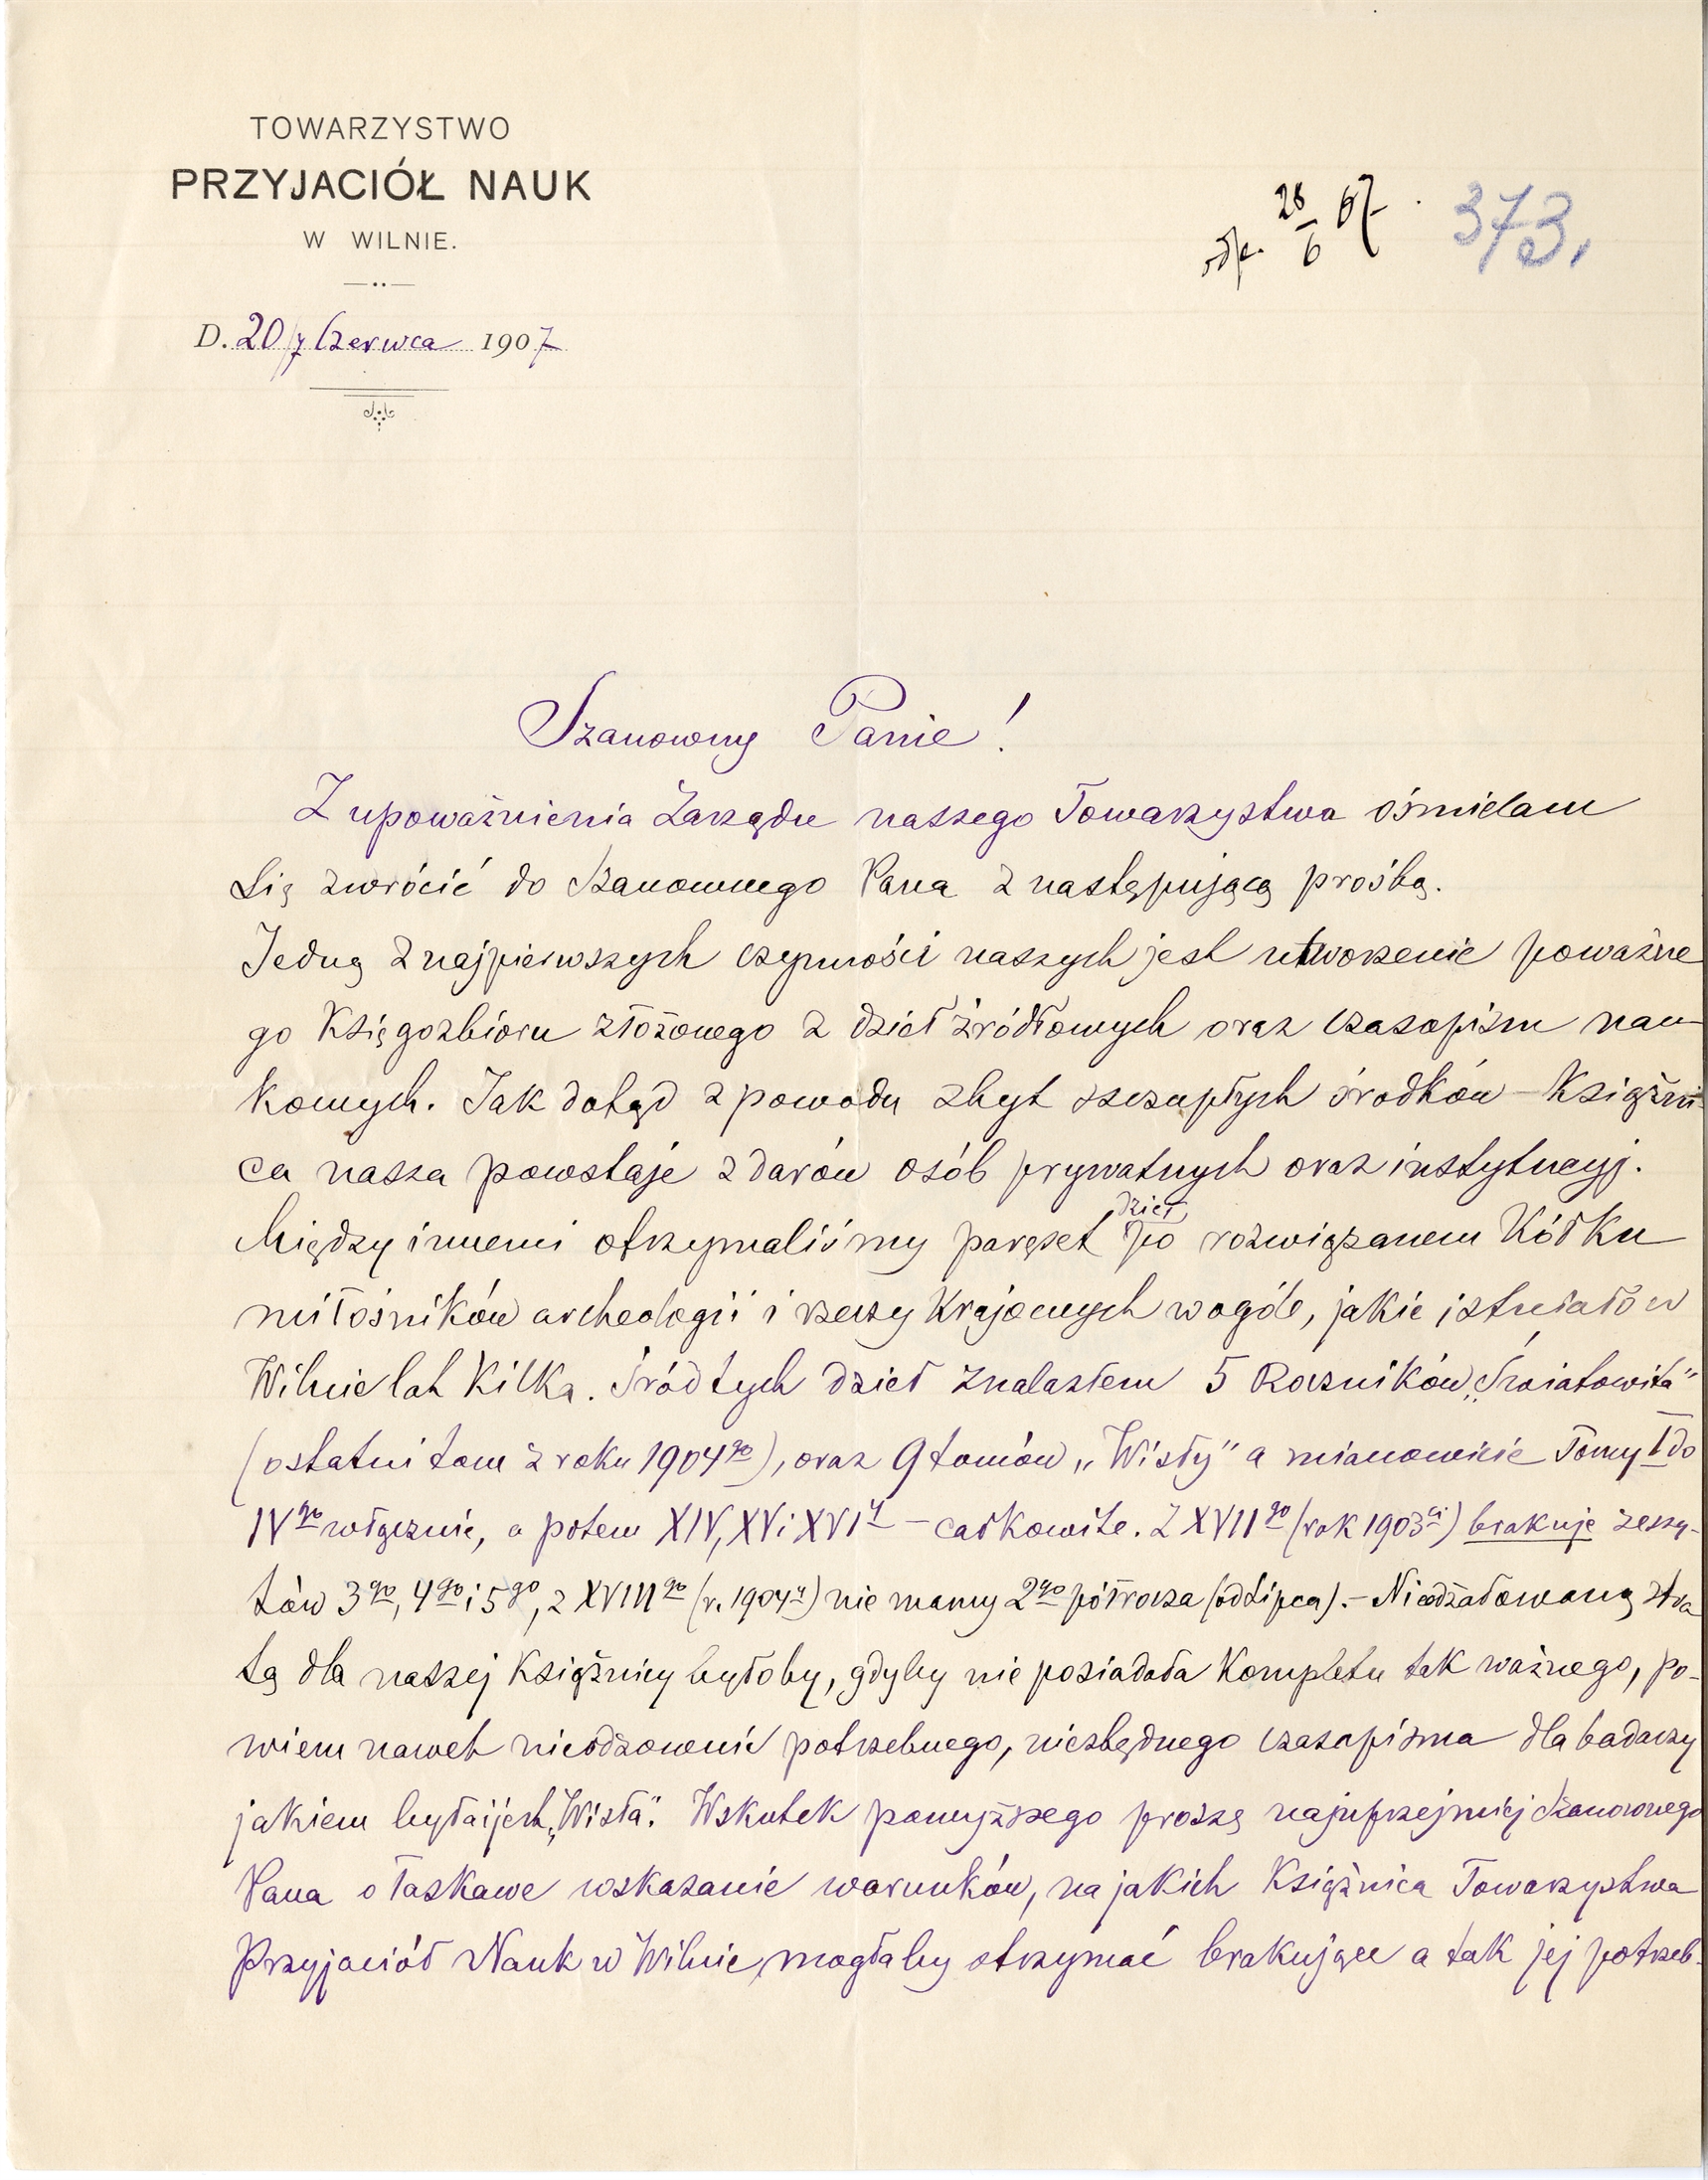 TOWARZYSTWO
PRZYJACIÓŁ NAUK
W WILNIE.
D. 20/7 Czerwca 1907
odp. 28/6 07. 373.
Szanowny Panie!
Z upoważnienia Zarządu naszego Towarzystwa ośmielam
się zwrócić do Szanownego Pana z następującą prośbą.
Jedną z najpierwszych czynności naszych jest utworzenie poważne
go Księgozbioru złożonego z dzieł źródłowych oraz czasopism nau-
kowych. Jak dotąd z powodu zbyt szczupłych środków – Książni-
ca nasza powstaje z darów osób prywatnych oraz instytucyj.
Między innemi otrzymaliśmy paręset dzieł po rozwiązanem Kółku
miłośników archeologii i rzeczy krajowych wogóle, jakie istniało w
Wilnie lat kilka. Śród tych dzieł znalazłem 5 Roczników „Światowita"
(ostatni tom z roku 1904go), oraz 9 tomów „Wisły" a mianowicie Tomy I do
IVgo włącznie, a potem XIV, XV i XVIy – całkowite. Z XVIIgo (rok 1903ci) brakuje zeszy-
tów 3go, 4go i 5go, z XVIIIgo (r. 1904y) nie mamy 2go półrocza (od Lipca). – Nieodżałowaną stra
tą dla naszej Książnicy byłoby, gdyby nie posiadała Kompletu tak ważnego, po-
wiem nawet nieodzownie potrzebnego, niezbędnego czasopisma dla badaczy
jakiem była i jest „Wisła". Wskutek powyższego proszę najuprzejmiej Szanownego
Pana o łaskawe wskazanie warunków, na jakich Książnica Towarzystwa
Przyjaciół Nauk w Wilnie mogłaby otrzymać brakujące a tak jej potrzeb-